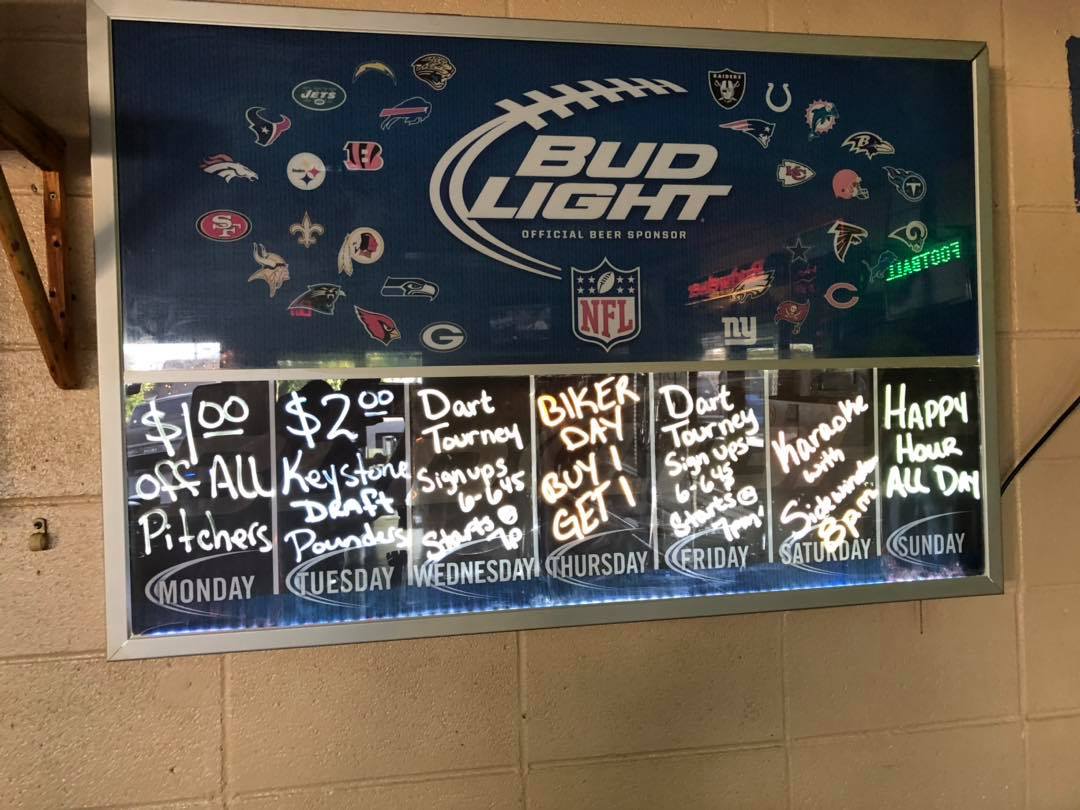 JETS
RAIDERS
BUD
LIGHT
OFFICIAL BEER SPONSOR
NFL
SF
B
KC
T
G
C
ny
FOOTBALL
$1 00
off ALL
Pitchers
MONDAY
$2 00
Keystone
DRAFT
Pounders
TUESDAY
Dart
Tourney
Sign ups
6-645
Starts @
7p
WEDNESDAY
BIKER
DAY
BUY 1
GET 1
THURSDAY
Dart
Tourney
Sign ups
6-645
Starts @
7pm
FRIDAY
Karaoke
with
Sidewinder
8pm
SATURDAY
HAPPY
HOUR
ALL DAY
SUNDAY